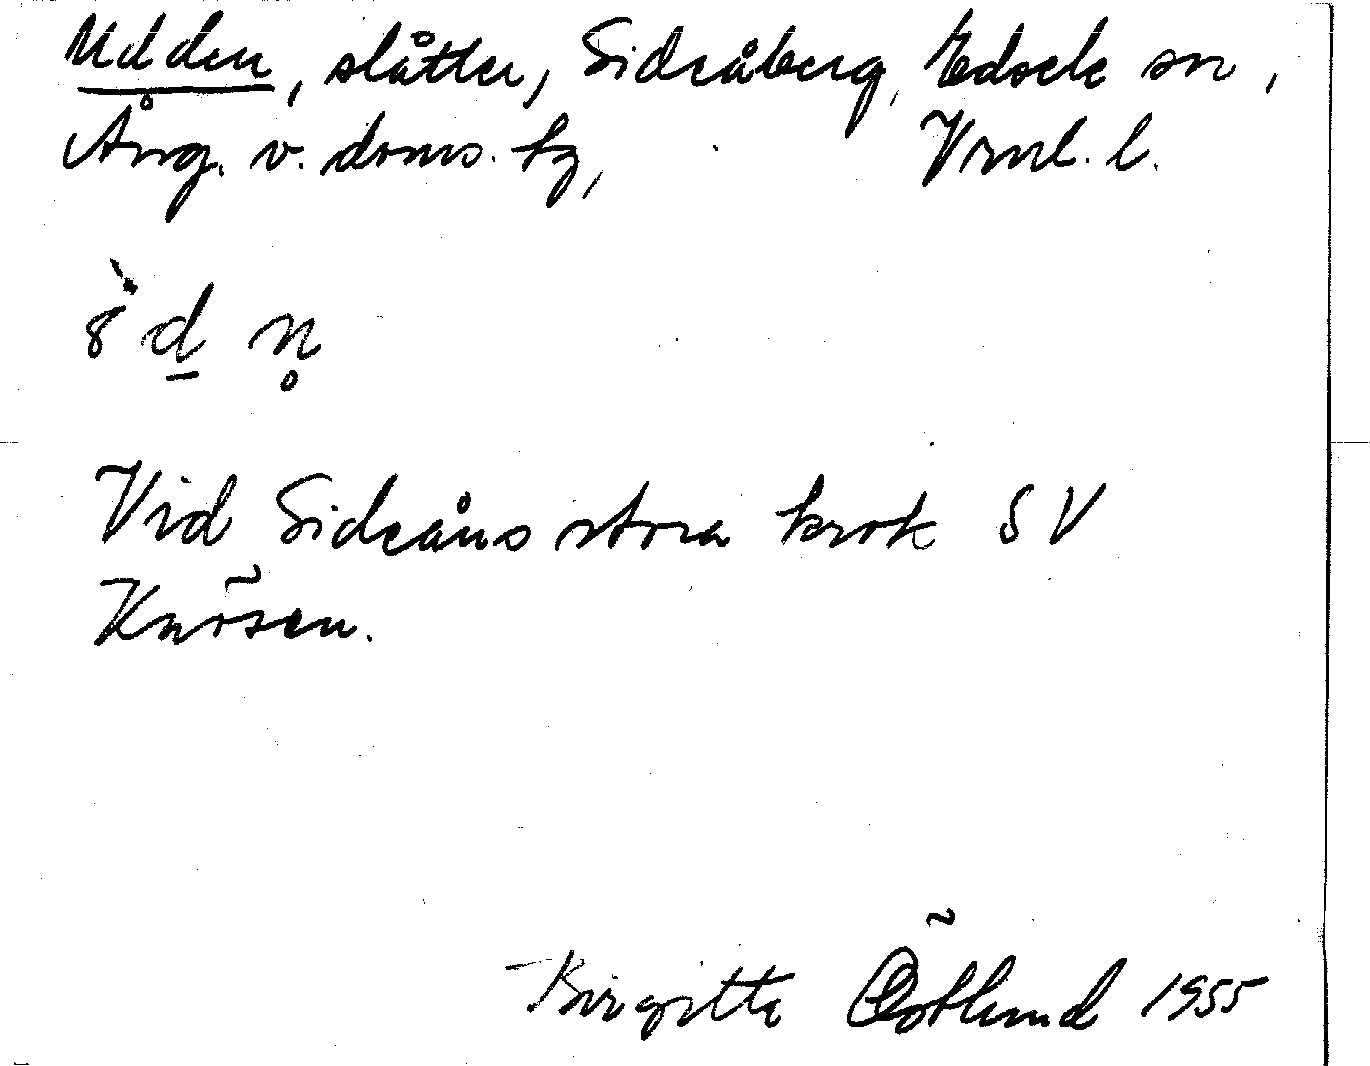 Udden, slåtter, Sideåberg, Edsele sn,
Ång. v. doms. tg, Vrnl. l.
8̀ d̲ n̥
Vid Sideåns stora krok SV
Knösen.
Birgitta Östlund 1955